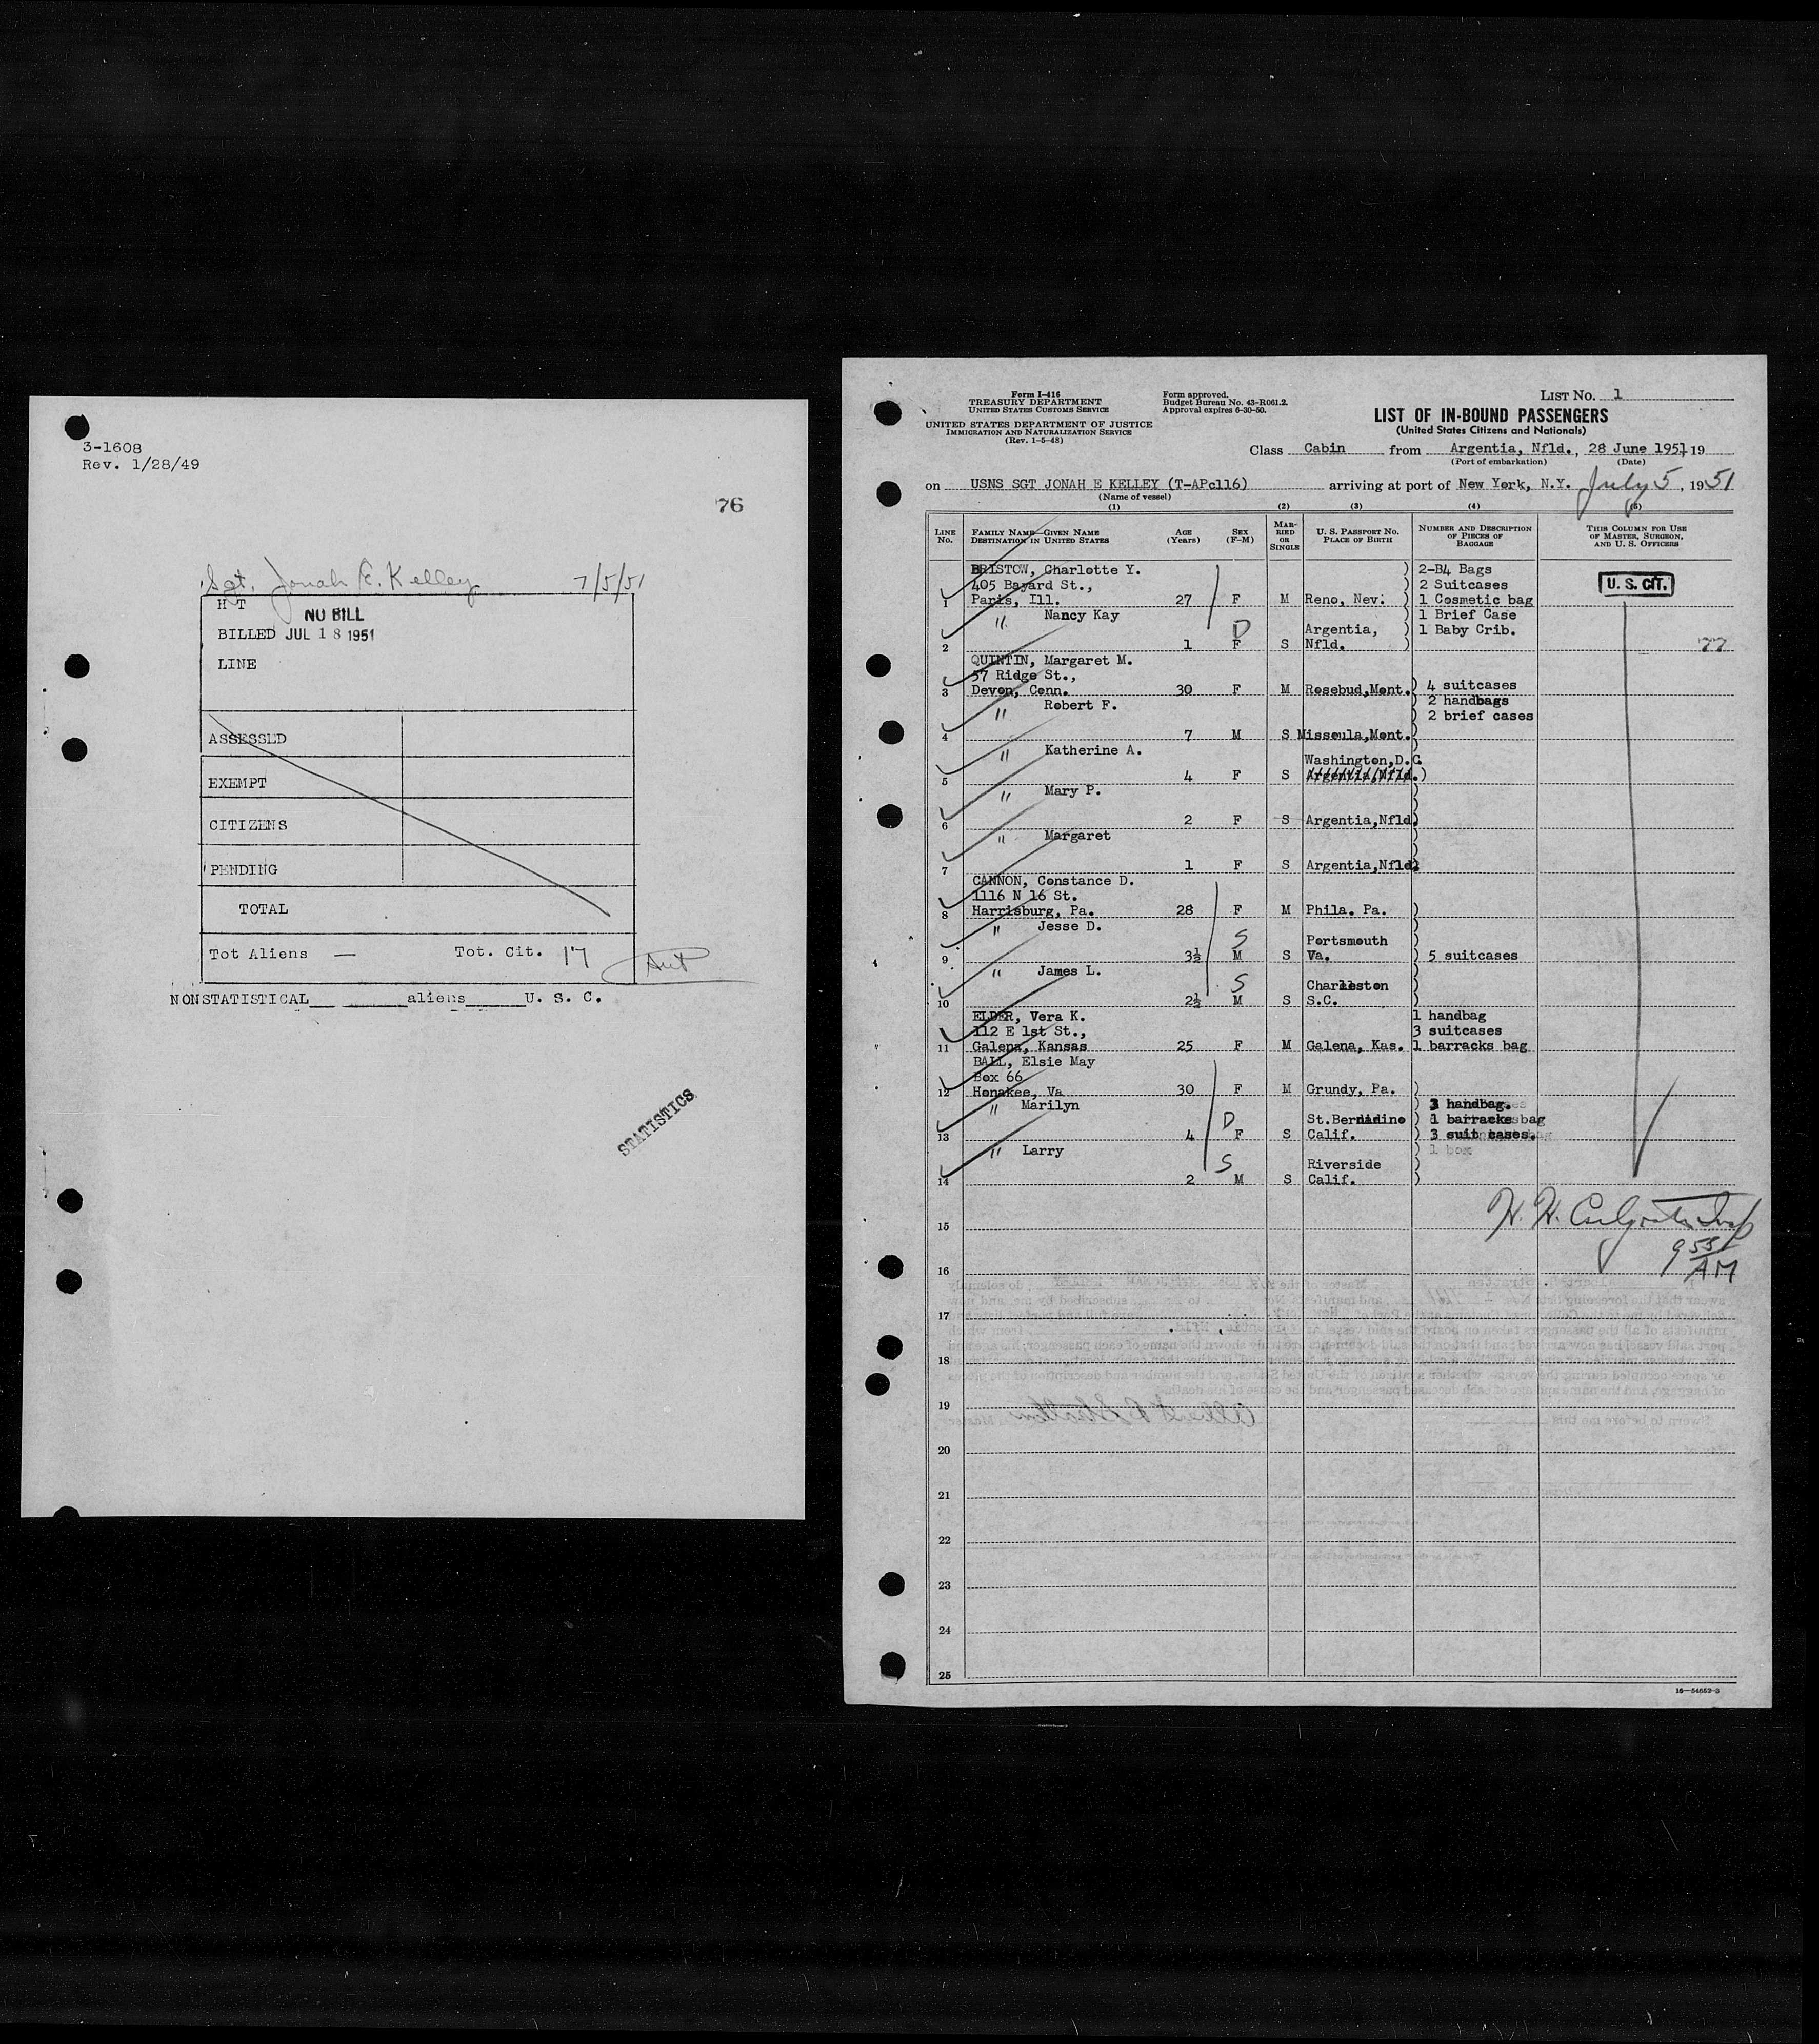 3-1608
Rev. 1/28/49
76
Sgt. Jonah E. Kelley 7/5/51
H T
NO BILL
BILLED JUL 18 1951
LINE
ASSESSED
EXEMPT
CITIZENS
PENDING
TOTAL
Tot Aliens — Tot. Cit. 17
NONSTATISTICAL aliens U. S. C.
STATISTICS
Form I-416
TREASURY DEPARTMENT
UNITED STATES CUSTOMS SERVICE
UNITED STATES DEPARTMENT OF JUSTICE
IMMIGRATION AND NATURALIZATION SERVICE
(Rev. 1-5-48)
Form approved.
Budget Bureau No. 43-R061.2.
Approval expires 6-30-50.
LIST No. 1
LIST OF IN-BOUND PASSENGERS
(United States Citizens and Nationals)
Class Cabin from Argentia, Nfld., 28 June 1951 19
(Port of embarkation) (Date)
on USNS SGT JONAH E KELLEY (T-APc116) arriving at port of New York, N.Y. July 5, 1951
(Name of vessel)
(1) (2) (3) (4) (5)
LINE No. FAMILY NAME—GIVEN NAME DESTINATION IN UNITED STATES AGE (Years) SEX (F-M) MARRIED OR SINGLE U. S. PASSPORT NO. PLACE OF BIRTH NUMBER AND DESCRIPTION OF PIECES OF BAGGAGE THIS COLUMN FOR USE OF MASTER, SURGEON, AND U. S. OFFICERS
BRISTOW, Charlotte Y. ) 2-B4 Bags
405 Bayard St., ) 2 Suitcases U. S. CIT.
1 Paris, Ill. 27 F M Reno, Nev. ) 1 Cosmetic bag
" Nancy Kay ) 1 Brief Case
D Argentia, ) 1 Baby Crib.
2 1 F S Nfld. ) 77
QUINTIN, Margaret M.
37 Ridge St.,
3 Devon, Conn. 30 F M Rosebud,Mont. ) 4 suitcases
" Robert F. ) 2 handbags
) 2 brief cases
4 7 M S Missoula,Mont.
" Katherine A. )
Washington,D.C.
5 4 F S Argentia,Nfld. )
" Mary P. )
6 2 F S Argentia,Nfld.
" Margaret )
7 1 F S Argentia,Nfld.
CANNON, Constance D.
1116 N 16 St.
8 Harrisburg, Pa. 28 F M Phila. Pa. )
" Jesse D. )
S Portsmouth )
9 3½ M S Va. ) 5 suitcases
" James L. )
S Charleston )
10 2½ M S S.C. )
ELDER, Vera K. 1 handbag
112 E 1st St., 3 suitcases
11 Galena, Kansas 25 F M Galena, Kas. 1 barracks bag
BALL, Elsie May
Box 66
12 Honakee, Va 30 F M Grundy, Pa. )
" Marilyn ) 1 handbag.
D St.Bernadino ) 1 barracks bag
13 4 F S Calif. ) 3 suit cases.
" Larry ) 1 box
S Riverside )
14 2 M S Calif. )
15
9 55 AM
16
17
18
19
20
21
22
23
24
25
16—54652-3